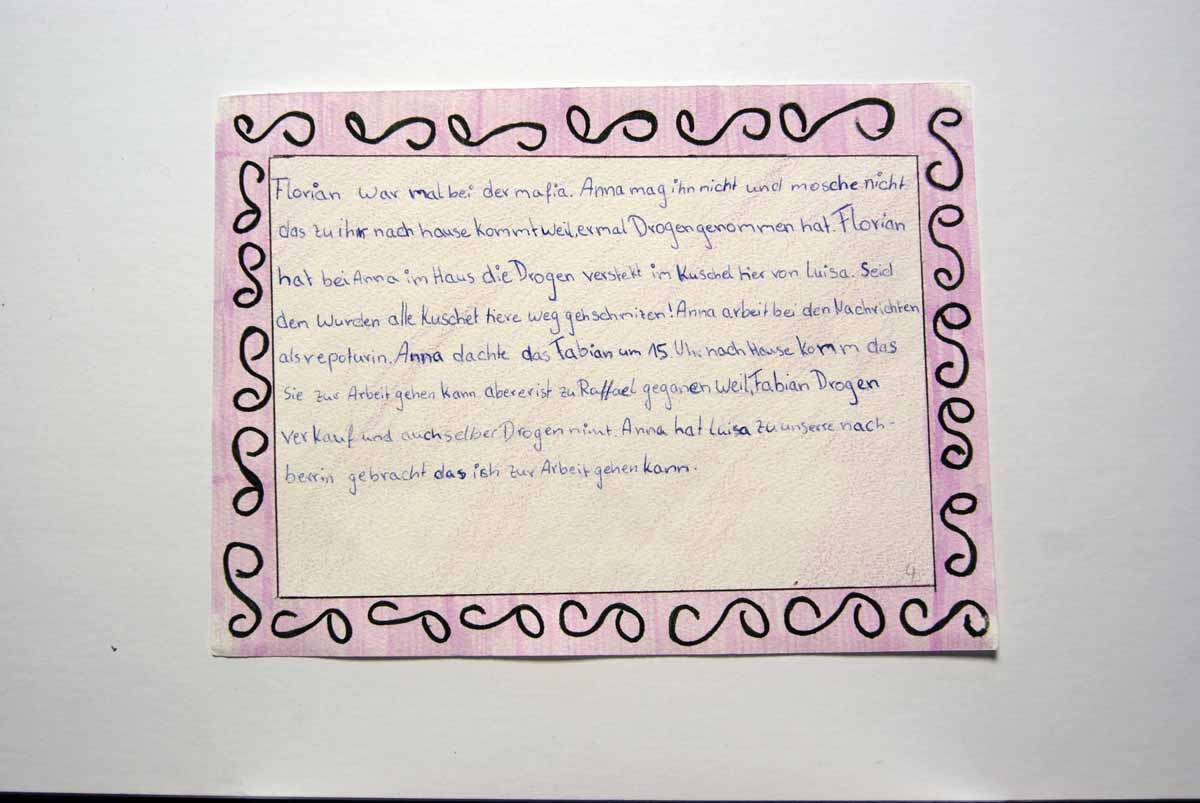 Florian war mal bei der mafia. Anna mag ihn nicht und mosche nicht
das zu ihr nach hause kommt weil, er mal Drogen genommen hat. Florian
hat bei Anna im Haus die Drogen verstekt im Kuschel tier von Luisa. Seid
den wurden alle Kuschel tiere weg gehschmizen! Anna arbeit bei den Nachrichten
als repoturin. Anna dachte das Fabian um 15. Uhr nach Hause komm das
Sie zur Arbeit gehen kann aber er ist zu Raffael geganen weil, Fabian Drogen
verkauf und auch selber Drogen nimt. Anna hat Luisa zu unserre nach-
berrin gebracht das ish zur Arbeit gehen kann.
4